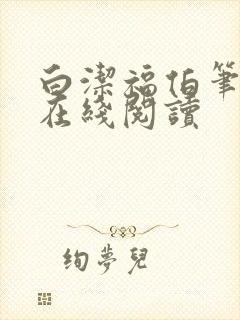 白潔福伯筆
在綫閱讀
絢夢兒